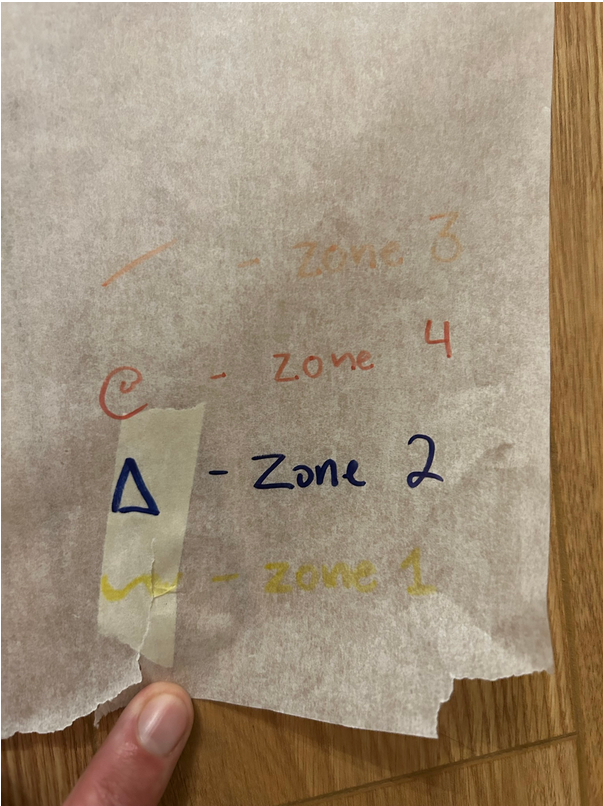 - zone 3
- zone 4
- Zone 2
- zone 1